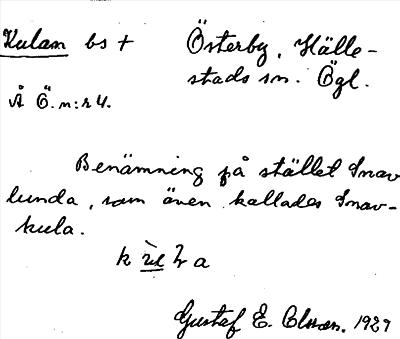 Kulan bs + Österby, Hälle-
stads sn. Ögl.
Å Ö. n:r 4.
Benämning på stället Snav
lunda, som även kallades Snav-
kula.
Gustaf E. Olsson. 1927